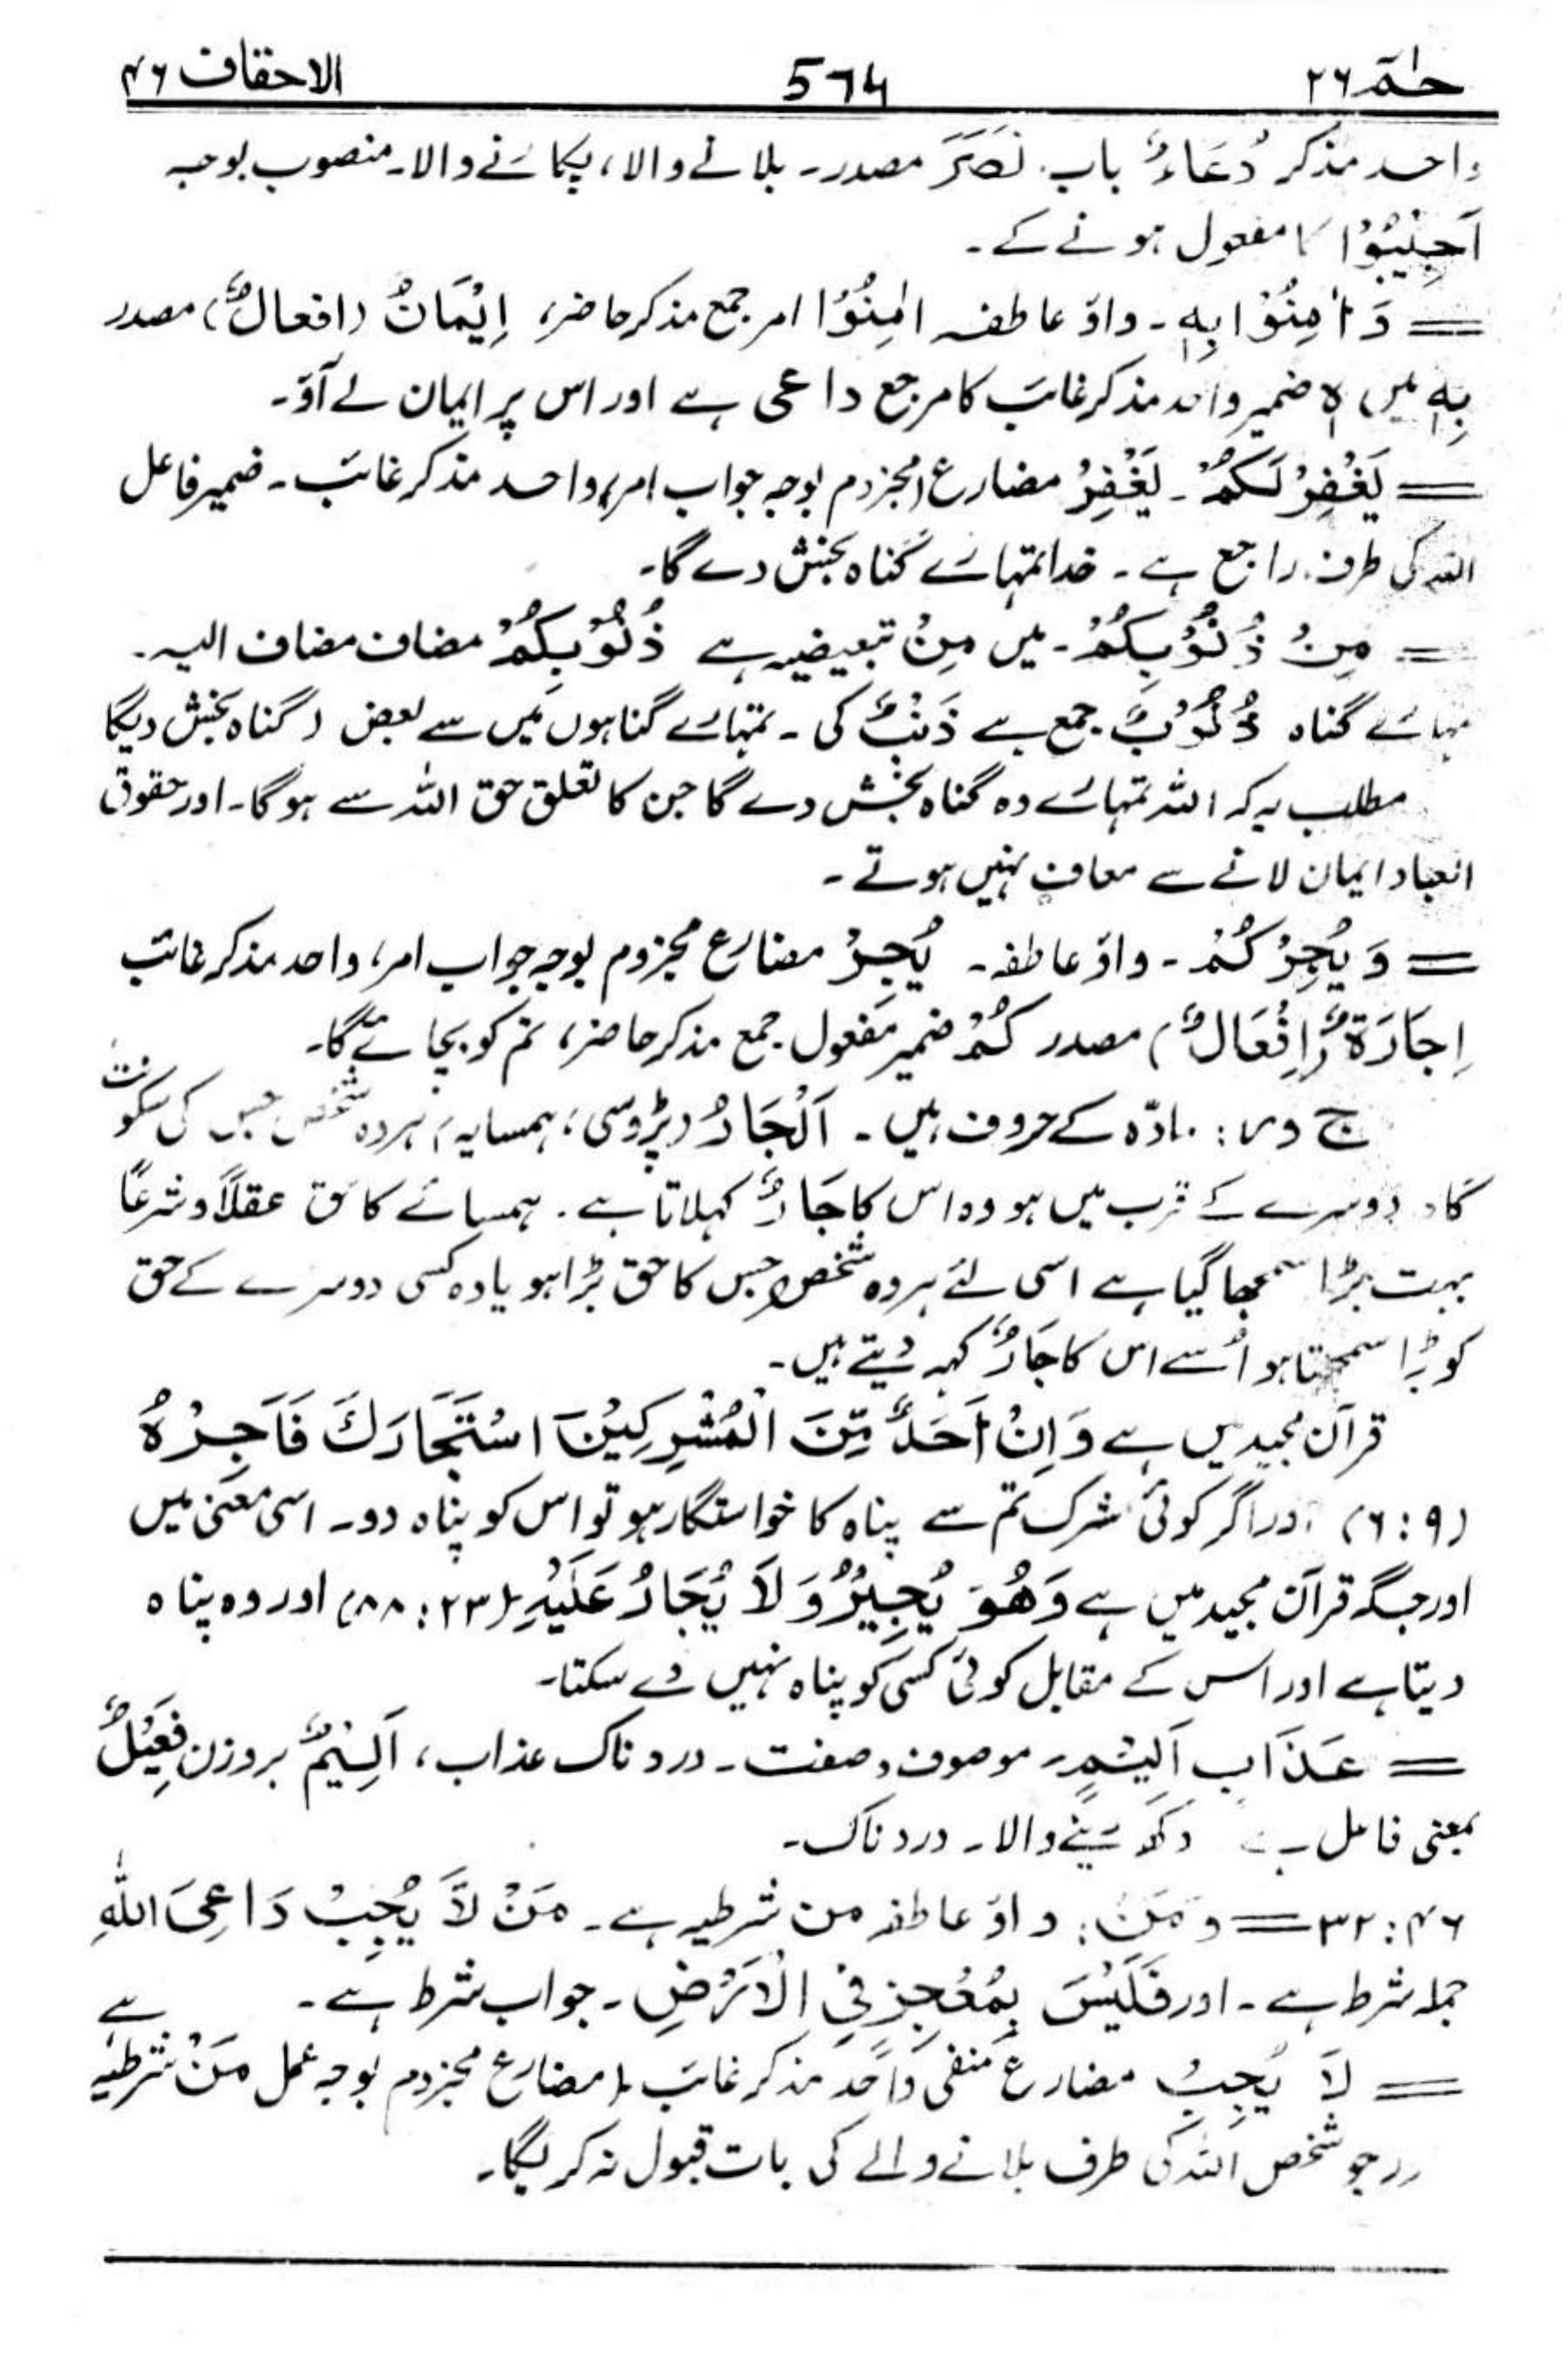 حٰمٓ ۲۶ 574 الاحقاف ۴۶
واحد مذکر دُعَاءٌ باب نَصَرَ مصدر۔ بلانے والا، پکارنے والا۔ منصوب بوجہ
اَجِیْبُوْا کا مفعول ہونے کے۔
= وَاٰمِنُوْا بِهٖ۔ واؤ عاطفہ اٰمِنُوْا امر جمع مذکر حاضر، اِیْمَانٌ (افعالٌ) مصدر
بِهٖ میں ہٖ ضمیر واحد مذکر غائب کا مرجع داعی ہے اور اس پر ایمان لے آؤ۔
= یَغْفِرْ لَکُمْ۔ یَغْفِرْ مضارع (مجزوم بوجہ جواب امر) واحد مذکر غائب۔ ضمیر فاعل
اللہ کی طرف راجع ہے۔ خدا تمہارے گناہ بخش دے گا۔
= مِنْ ذُنُوْبِکُمْ۔ میں مِنْ تبعیضیہ ہے ذُنُوْبِکُمْ مضاف مضاف الیہ۔
تمہارے گناہ ذُنُوْبٌ جمع ہے ذَنْبٌ کی۔ تمہارے گناہوں میں سے بعض (گناہ بخش دیگا
مطلب یہ کہ اللہ تمہارے وہ گناہ بخش دے گا جن کا تعلق حق اللہ سے ہوگا۔ اور حقوق
العباد ایمان لانے سے معاف نہیں ہوتے۔
= وَیُجِرْکُمْ۔ واؤ عاطفہ۔ یُجِرْ مضارع مجزوم بوجہ جواب امر، واحد مذکر غائب
اِجَارَةٌ (اِفْعَالٌ) مصدر کُمْ ضمیر مفعول جمع مذکر حاضر، تم کو بچائے گا۔
ج و ر: مادّہ کے حروف ہیں۔ اَلْجَارُ (پڑوسی، ہمسایہ) ہر وہ شخص جس کی سکونت
گاہ دوسرے کے قرب میں ہو وہ اس کا جَارٌ کہلاتا ہے۔ ہمسائے کا حق عقلاً و شرعاً
بہت بڑا سمجھا گیا ہے اسی لئے ہر وہ شخص جس کا حق بڑا ہو یا وہ کسی دوسرے کے حق
کو بڑا سمجھتا ہو اُسے اس کا جَارٌ کہہ دیتے ہیں۔
قرآن مجید میں ہے وَاِنْ اَحَدٌ مِّنَ الْمُشْرِکِیْنَ اسْتَجَارَكَ فَاَجِرْهُ
(۹: ۶) اور اگر کوئی مشرک تم سے پناہ کا خواستگار ہو تو اس کو پناہ دو۔ اسی معنی میں
اور جگہ قرآن مجید میں ہے وَهُوَ یُجِیْرُ وَلَا یُجَارُ عَلَیْهِ (۲۳: ۸۸) اور وہ پناہ
دیتا ہے اور اس کے مقابل کوئی کسی کو پناہ نہیں دے سکتا۔
= عَذَابٍ اَلِیْمٍ۔ موصوف و صفت۔ دردناک عذاب، اَلِیْمٌ بروزن فَعِیْلٌ
بمعنی فاعل ہے دکھ دینے والا۔ دردناک۔
۴۶: ۳۲ = وَمَنْ: واؤ عاطفہ من شرطیہ ہے۔ مَنْ لَّا یُجِبْ دَاعِیَ اللّٰهِ
جملہ شرط ہے۔ اور فَلَیْسَ بِمُعْجِزٍ فِی الْاَرْضِ۔ جواب شرط ہے۔
= لَا یُجِبْ مضارع منفی واحد مذکر غائب (مضارع مجزوم بوجہ عمل مَنْ شرطیہ ہے
جو شخص اللہ کی طرف بلانے والے کی بات قبول نہ کریگا۔